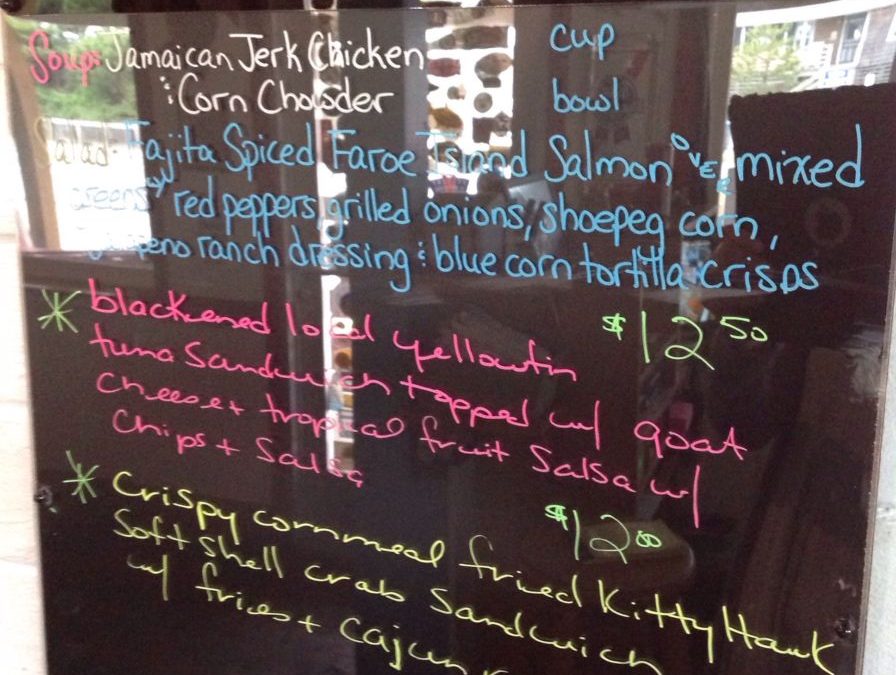 Soup: Jamaican Jerk Chicken cup
& Corn Chowder bowl
Salad: Fajita Spiced Faroe Island Salmon over mixed
greens, red peppers, grilled onions, shoepeg corn,
ranch dressing & blue corn tortilla crisps
* blackened local yellowfin $12 50
tuna Sandwich topped w/ goat
cheese + tropical fruit Salsa w/
Chips + Salsa
* Crispy cornmeal fried Kitty Hawk $12 00
Soft shell crab Sandwich
w/ fries + Cajun